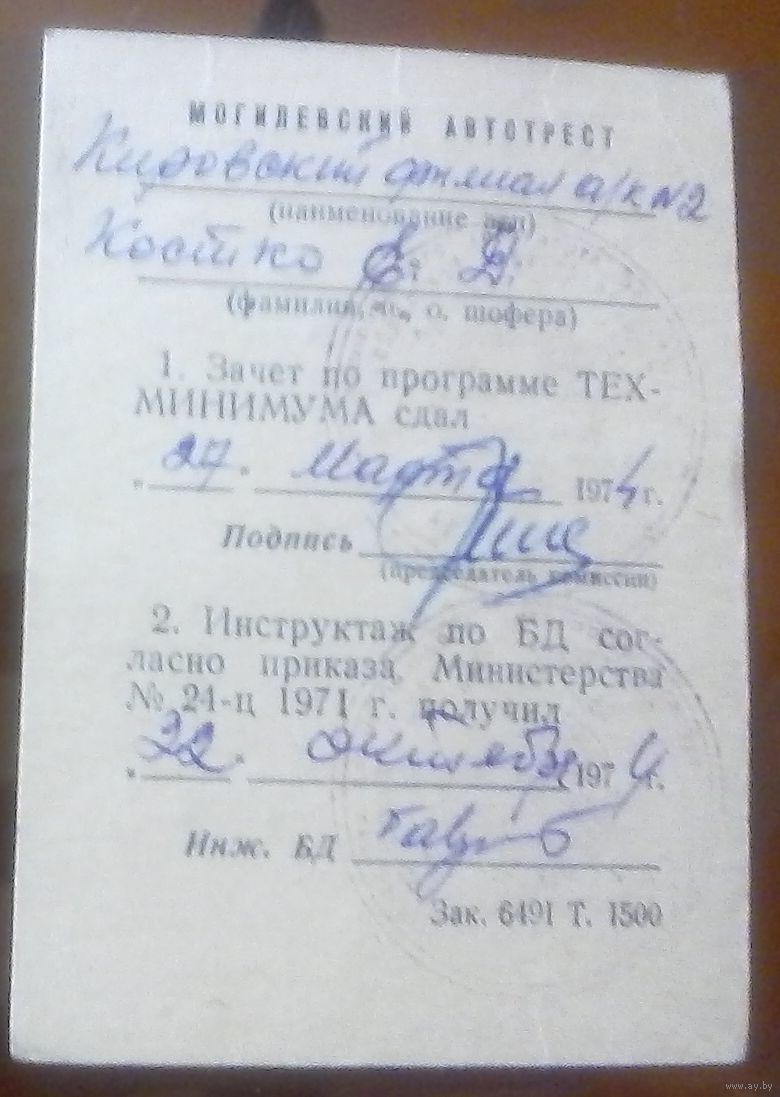 МОГИЛЕВСКИЙ АВТОТРЕСТ
Кировский филиал а/к №2
(наименование
Костко Е. Д.
(фамилия, и., о, шофера)
1. Зачет по программе ТЕХ-
МИНИМУМА сдал
„27" марта 1974 г.
Подпись
(председатель комиссии)
2. Инструктаж по БД сог-
ласно приказа Министерства
№ 24-ц 1971 г. получил
„22" октября 1974 г.
Инж. БД
Зак. 6491 Т. 1500
www.ay.by